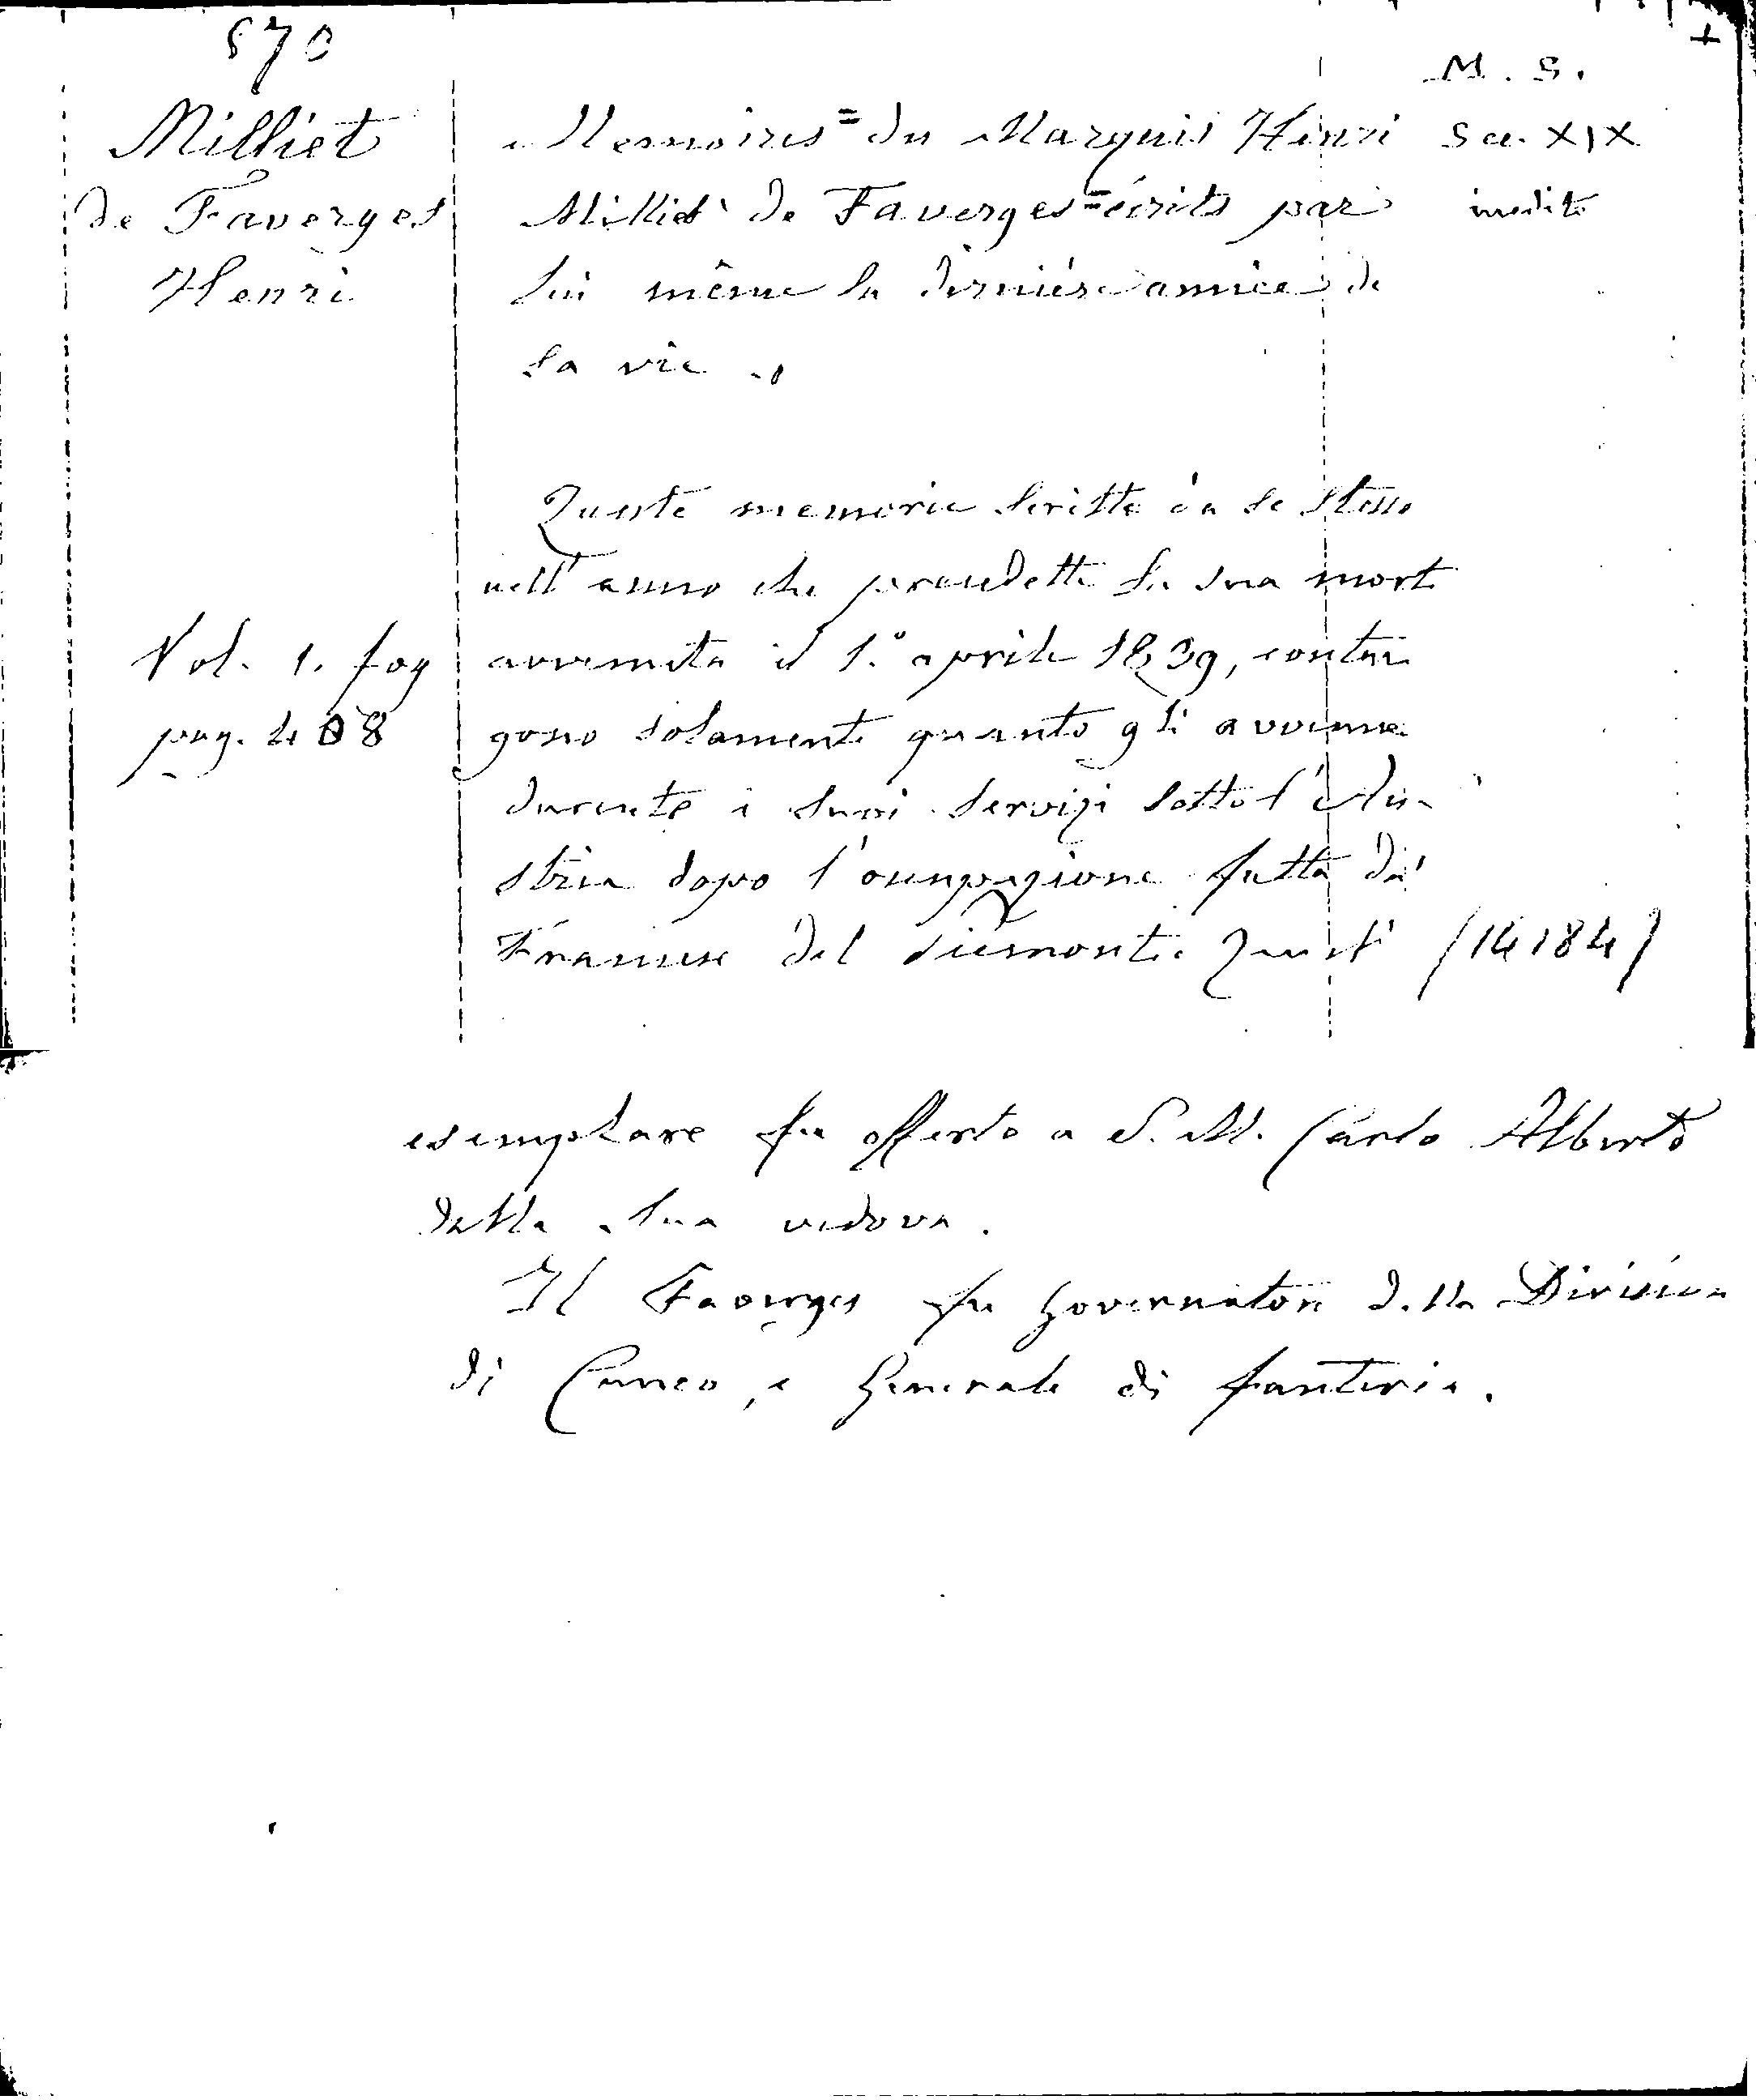 870
M. S.
Milliet
de Faverges
Henri
Memoires = du Marquis Henri
Milliet de Faverges = écrits par
lui même la dernière année de
sa vie.
Sec. XIX
inedite
Queste memorie scritte da se stesso
nell'anno che precedette la sua morte
avvenuta il 1.° aprile 1839, conten
gono solamente quanto gli avvenne
durante i suoi servizi sotto l'Au-
stria dopo l'occupazione fatta da'
Francesi del Piemonte. Quest'
Vol. 1. fog
pag. 408
(14184)
esemplare fu offerto a S. M. Carlo Alberto
dalla sua vedova.
Il Faverges fu Governatore della Divisione
di Cuneo, e Generale di fanteria.